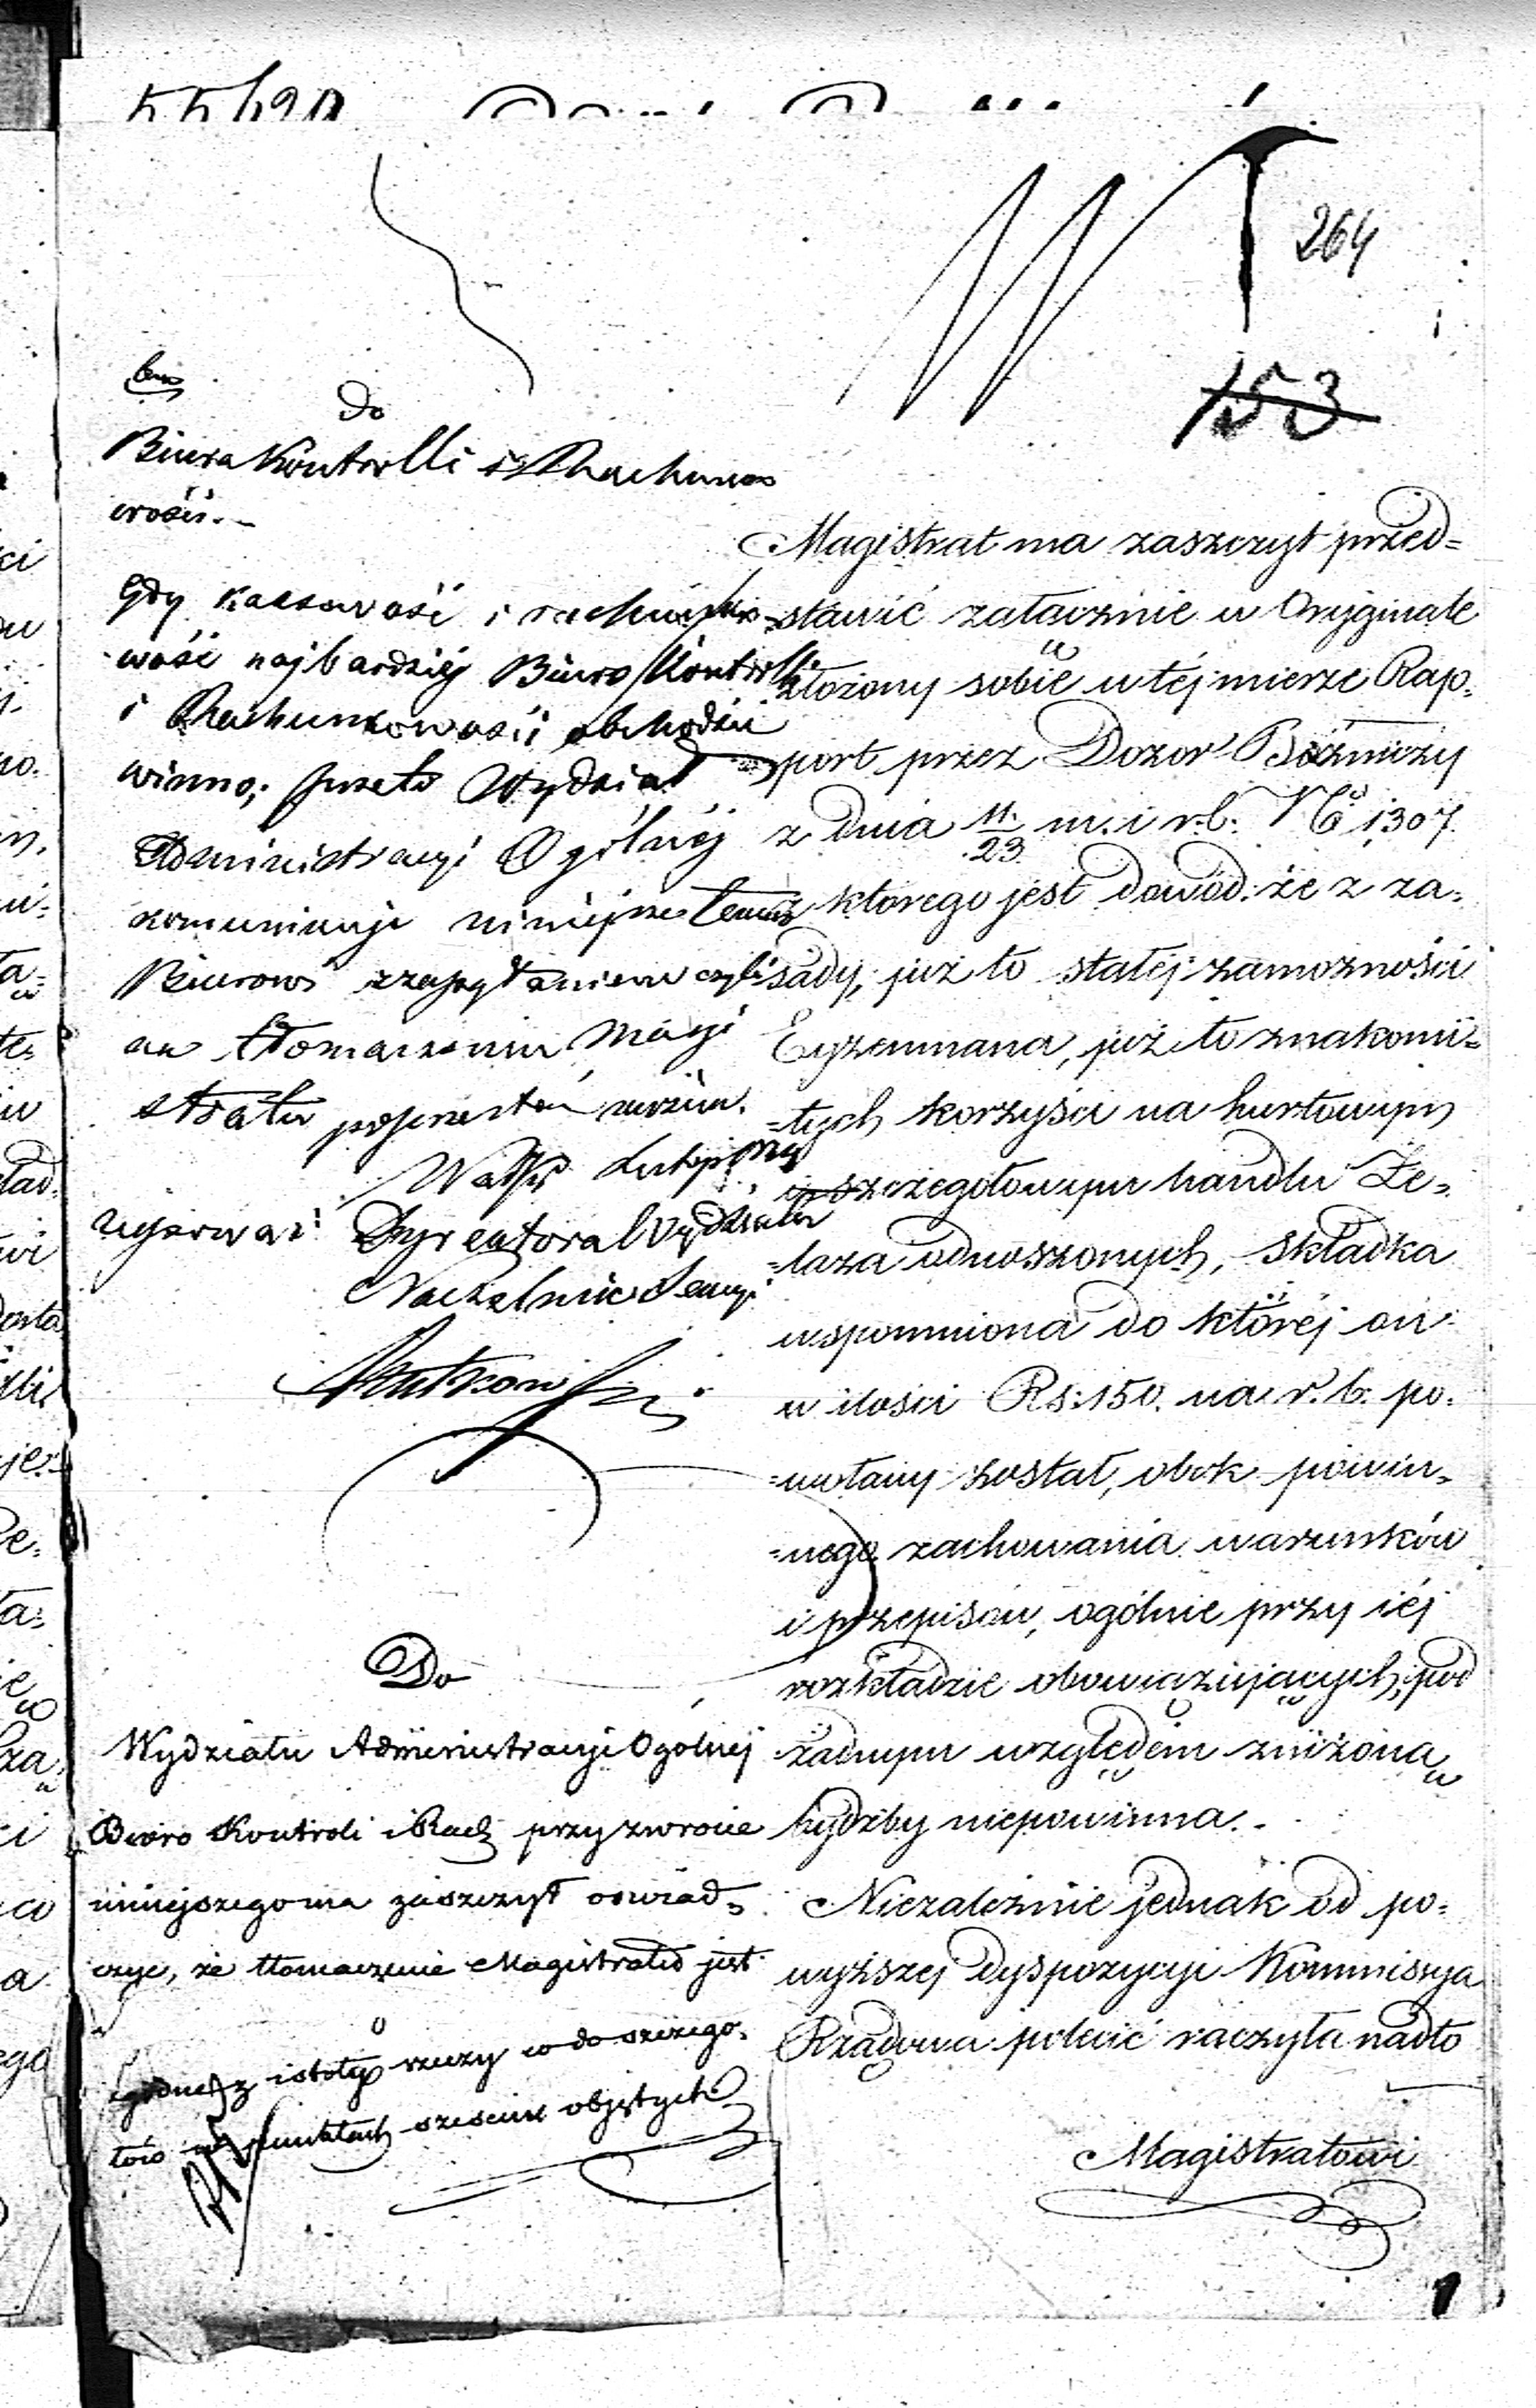 264
153
Do
Biura Kontrolli i Rachunko
wości.
Gdy kassowość i rachunko
wość najbardziej Biuro Kontrolli
i Rachunkowości obchodzić
winno; przeto Wydział
Administracyi Ogólnéj
komunikuje niniejsze temuż
Biurowi z zapytaniem czyli
na tłomaczeniu Magi
stratu poprzestać można.
Dyrektora Wydziału
Naczelnik Sekcyi
Do
Wydziału Administracyi Ogólnej
Biuro Kontroli i Rach przy zwrocie
niniejszego ma zaszczyt oświad=
czyć, że tłomaczenie Magistratu jest
zgodne z istotą rzeczy co do szczegó=
łów w punktach sześciu objętych
Magistrat ma zaszczyt przed=
=stawić załącznie w Oryginale
złożony sobie w téj mierze Rap=
=port przez Dozór Bóżniczy
z dnia 11./23. m. i r. b. No 1307.
z którego jest dowód: że z za=
sady, już to stałéj zamożności
Eyzenmana, już to znakomi=
=tych korzyści na hurtowym
i szczegółowym handlu Że=
=laza odnoszonych, składka
wspomniona do któréj on
w ilości Rs: 150. na r. b. po=
=wołany został, obok powin=
=nego zachowania warunków
i przepisów, ogólnie przy iéj
rozkładzie obowiązujących, pod
żadnym względem zniżoną
bydźby niepowinna.
Niezależnie jednak od po=
wyższej dyspozycyi Kommissya
Rządowa polecić raczyła nadto
Magistratowi
1